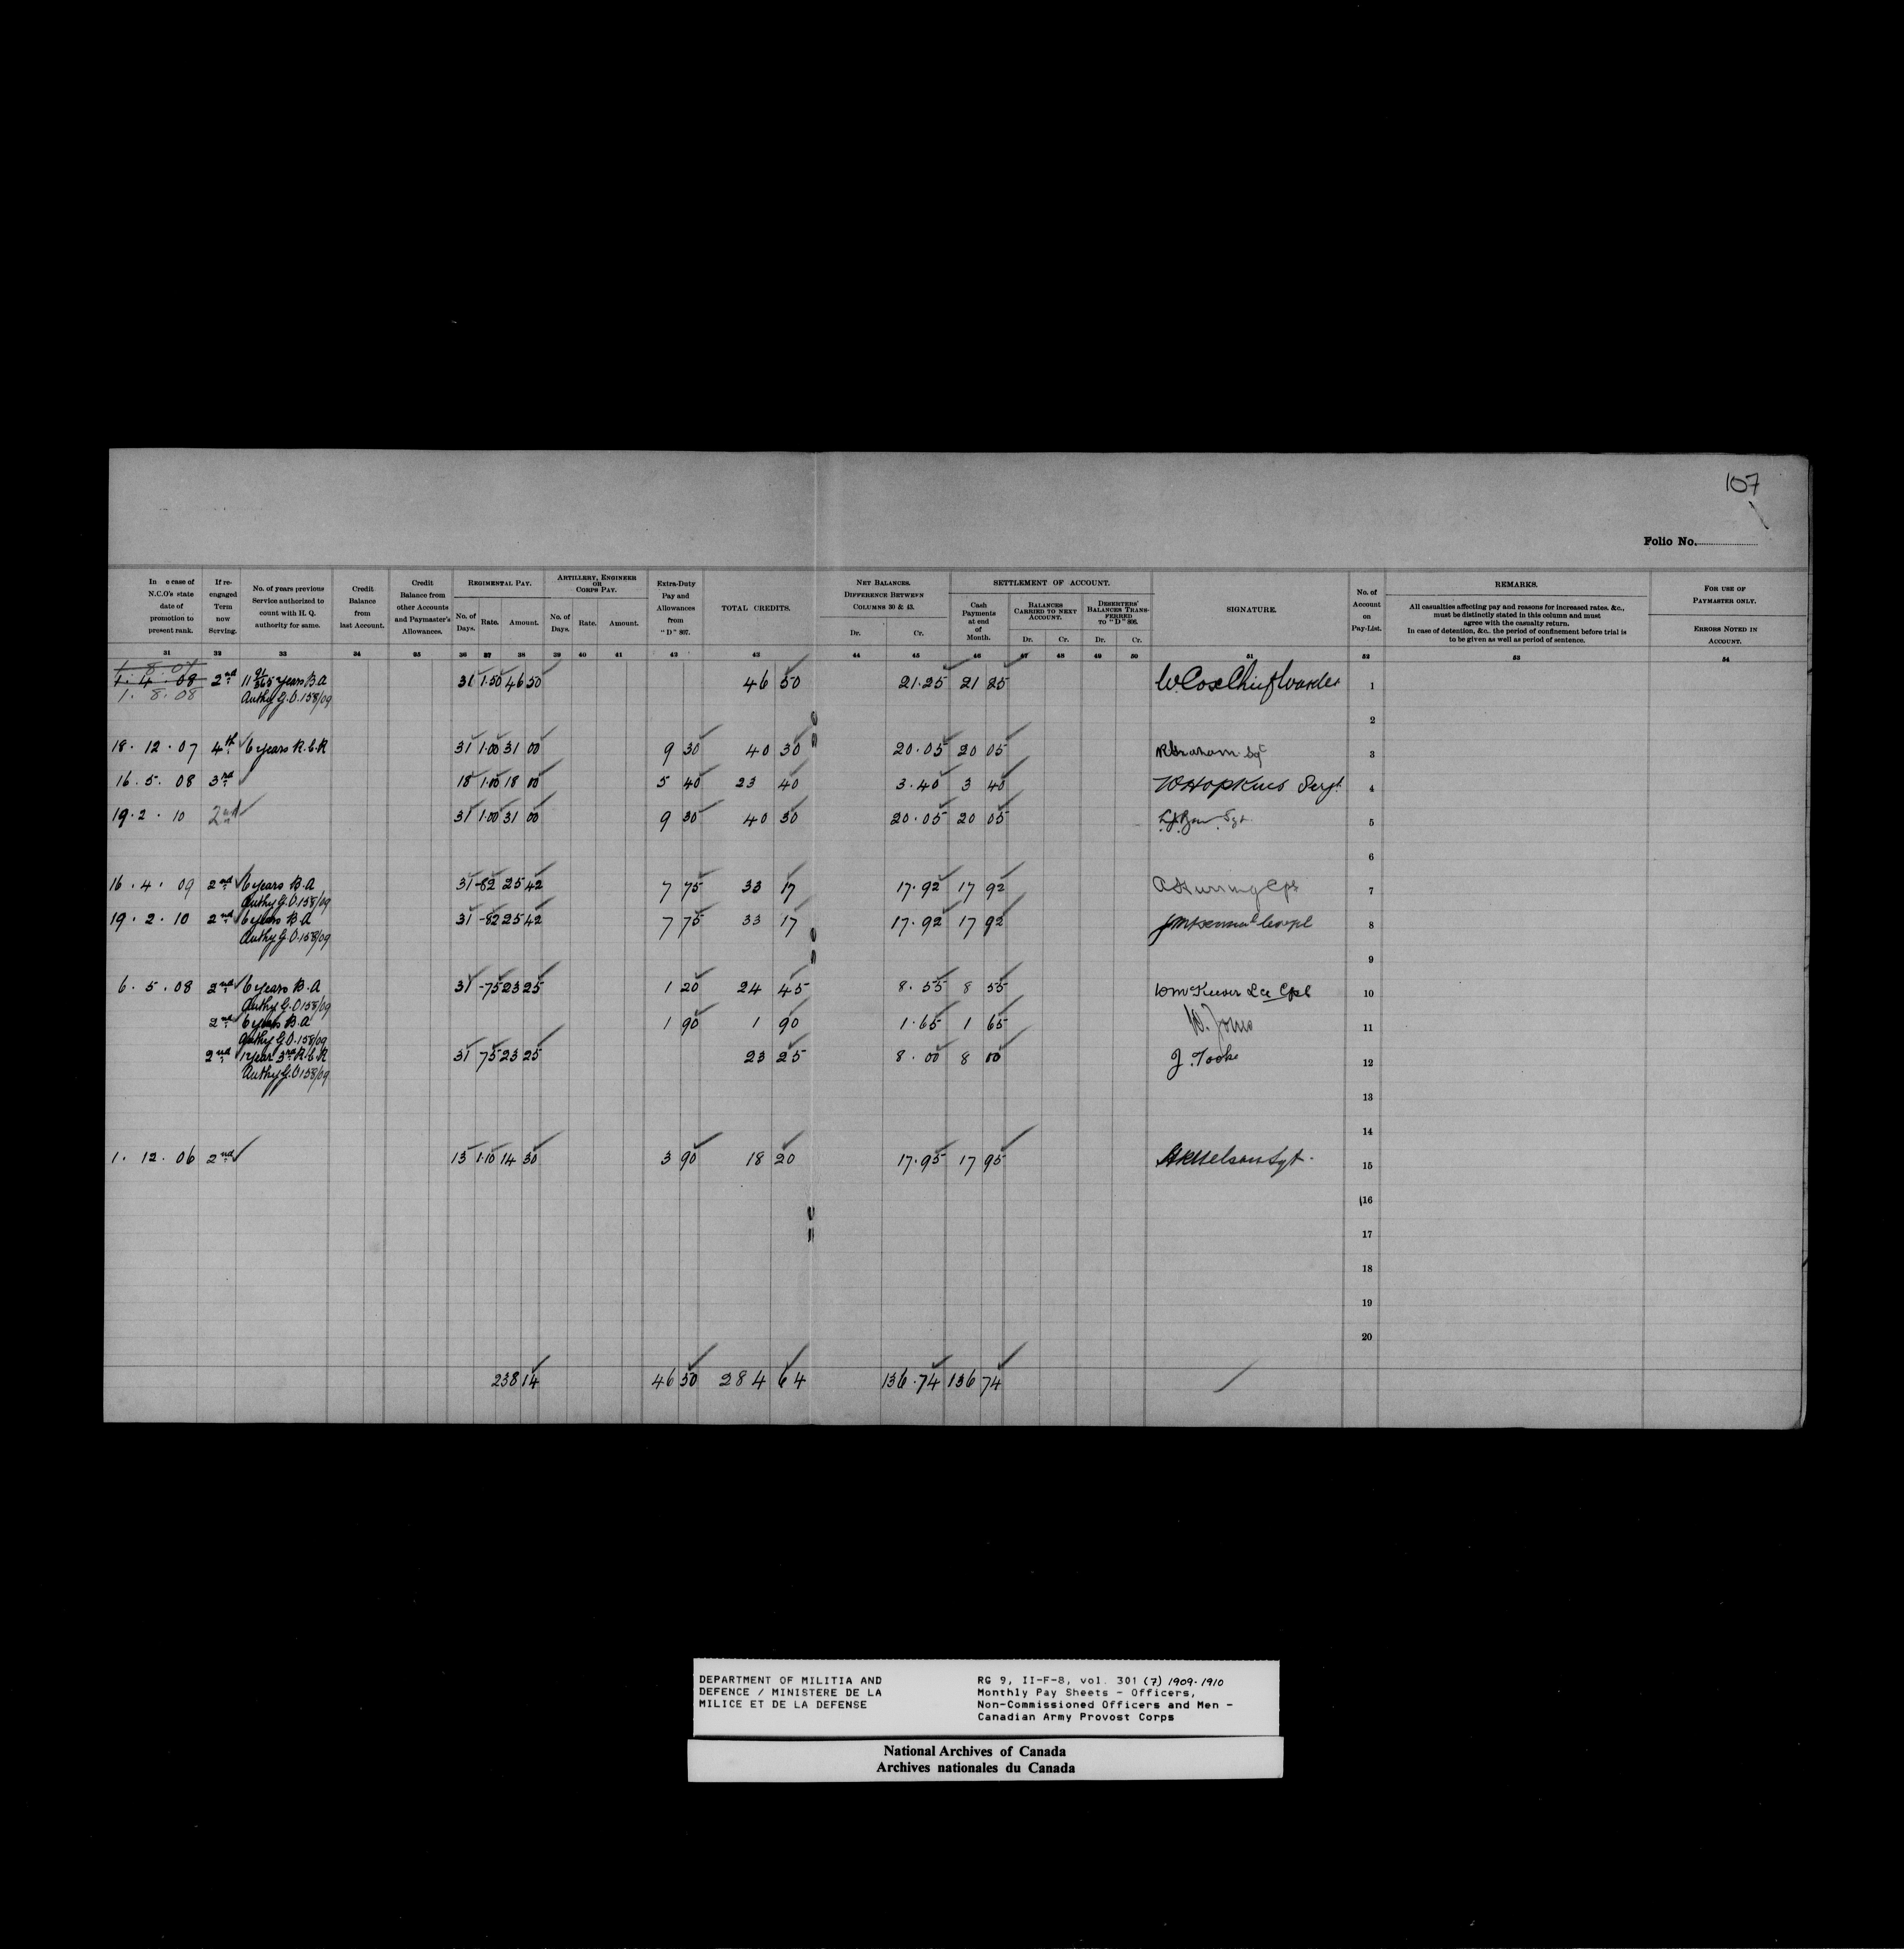 107
Folio No.
In e case of N.C.O's state date of promotion to present rank.
If re-engaged Term now Serving.
No. of years previous Service authorized to count with H. Q. authority for same.
Credit Balance from last Account.
Credit Balance from other Accounts and Paymaster's Allowances.
REGIMENTAL PAY.
No. of Days. Rate. Amount.
ARTILLERY, ENGINEER OR CORPS PAY.
No. of Days. Rate. Amount.
Extra-Duty Pay and Allowances from "D" 807.
TOTAL CREDITS.
NET BALANCES.
DIFFERENCE BETWEEN COLUMNS 30 & 43.
Dr. Cr.
SETTLEMENT OF ACCOUNT.
Cash Payments at end of Month.
BALANCES CARRIED TO NEXT ACCOUNT.
Dr. Cr.
DESERTERS' BALANCES TRANSFERRED TO "D" 806.
Dr. Cr.
SIGNATURE.
No. of Account on Pay-List.
REMARKS.
All casualties affecting pay and reasons for increased rates, &c., must be distinctly stated in this column and must agree with the casualty return.
In case of detention, &c., the period of confinement before trial is to be given as well as period of sentence.
FOR USE OF PAYMASTER ONLY.
ERRORS NOTED IN ACCOUNT.
31 32 33 34 35 36 37 38 39 40 41 42 43 44 45 46 47 48 49 50 51 52 53 54
1. 4. 08 2nd 11 years B.A 31 1.50 46 50 46 50 21.25 21 25 W. Cox Chief Warder 1
1. 8. 08 Authy G.O. 158/09
2
18. 12. 07 4th 6 years R.C.R 31 1.00 31 00 9 30 40 30 20.05 20 05 R Graham Sgt 3
16. 5. 08 3rd 18 1.00 18 00 5 40 23 40 3.40 3 40 W Hopkins Sergt. 4
19. 2. 10 2nd 31 1.00 31 00 9 30 40 30 20.05 20 05 Sgt. 5
6
16. 4. 09 2nd 6 years B.A 31 -82 25 42 7 75 33 17 17.92 17 92 Cpl 7
Authy G.O. 158/09
19. 2. 10 2nd 6 years B.A 31 -82 25 42 7 75 33 17 17.92 17 92 Corpl 8
Authy G.O. 158/09
9
6. 5. 08 2nd 6 years B.A 31 -75 23 25 1 20 24 45 8.55 8 55 W McKeever Lce Cpl 10
Authy G.O 158/09
2nd 6 years B.A 1 90 1 90 1.65 1 65 W. Johns 11
Authy G.O. 158/09
2nd 1 year 3rd R.C.R 31 75 23 25 23 25 8.00 8 00 J. Tooke 12
Authy G.O 158/09
13
14
1. 12. 06 2nd 13 1.10 14 30 3 90 18 20 17.95 17 95 Sgt. 15
16
17
18
19
20
238 14 46 50 284 64 136.74 136 74
DEPARTMENT OF MILITIA AND
DEFENCE / MINISTERE DE LA
MILICE ET DE LA DEFENSE
RG 9, II-F-8, vol. 301 (7) 1909-1910
Monthly Pay Sheets - Officers,
Non-Commissioned Officers and Men -
Canadian Army Provost Corps
National Archives of Canada
Archives nationales du Canada